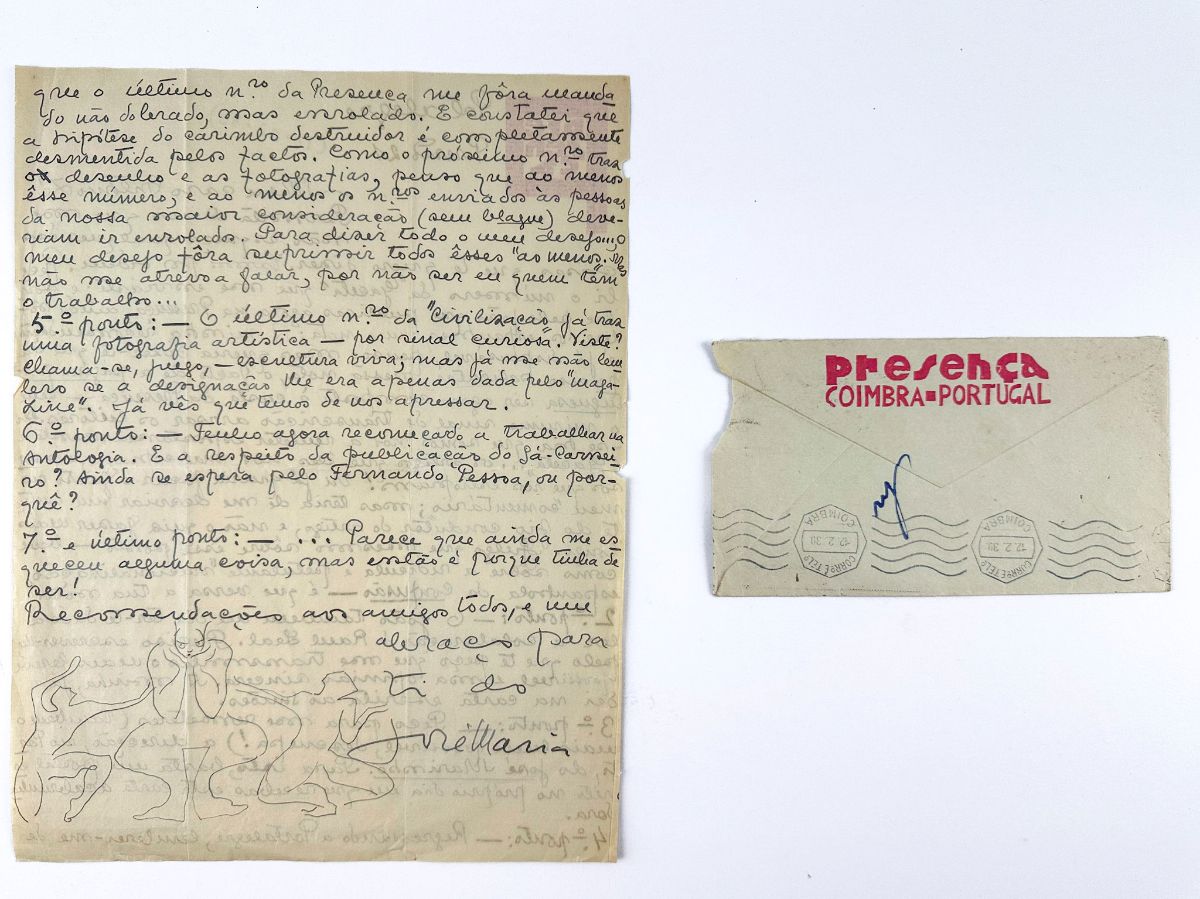 que o último n.ro da Presença me fôra manda
do não dobrado, mas enrolado. E constatei que
a hipótese do carimbo destruidor é completamente
desmentida pelos factos. Como o próximo n.ro traz
desenho e as fotografias, penso que ao menos
êsse número, e ao menos os n.ros enviados às pessoas
da nossa maior consideração (sem blague) deve-
riam ir enrolados. Para dizer todo o meu desejo..., o
meu desejo fôra suprimir todos êsses "ao menos". Mas
não me atrevo a falar, por não ser eu quem têm
o trabalho...
5.º ponto: — O último n.ro da "Civilização" já traz
uma fotografia artística — por sinal curiosa. Viste?
Chama-se, julgo, — escultura viva; mas já me não lem
bro se a designação lhe era apenas dada pelo "maga-
zine". Já vês que temos de nos apressar.
6.º ponto: — Tenho agora recomeçado a trabalhar na
Antologia. E a respeito da publicação do Sá-Carnei-
ro? Ainda se espera pelo Fernando Pessoa, ou por-
quê?
7.º e último ponto: — ... Parece que ainda me es
queceu alguma coisa, mas então é porque tinha de
ser!
Recomendações aos amigos todos, e um
abraço para
ti do
José Maria
presença
COIMBRA-PORTUGAL
COIMBRA
12.2.30
CORR.º E TELE
COIMBRA
12.2.30
CORR.º E TELE